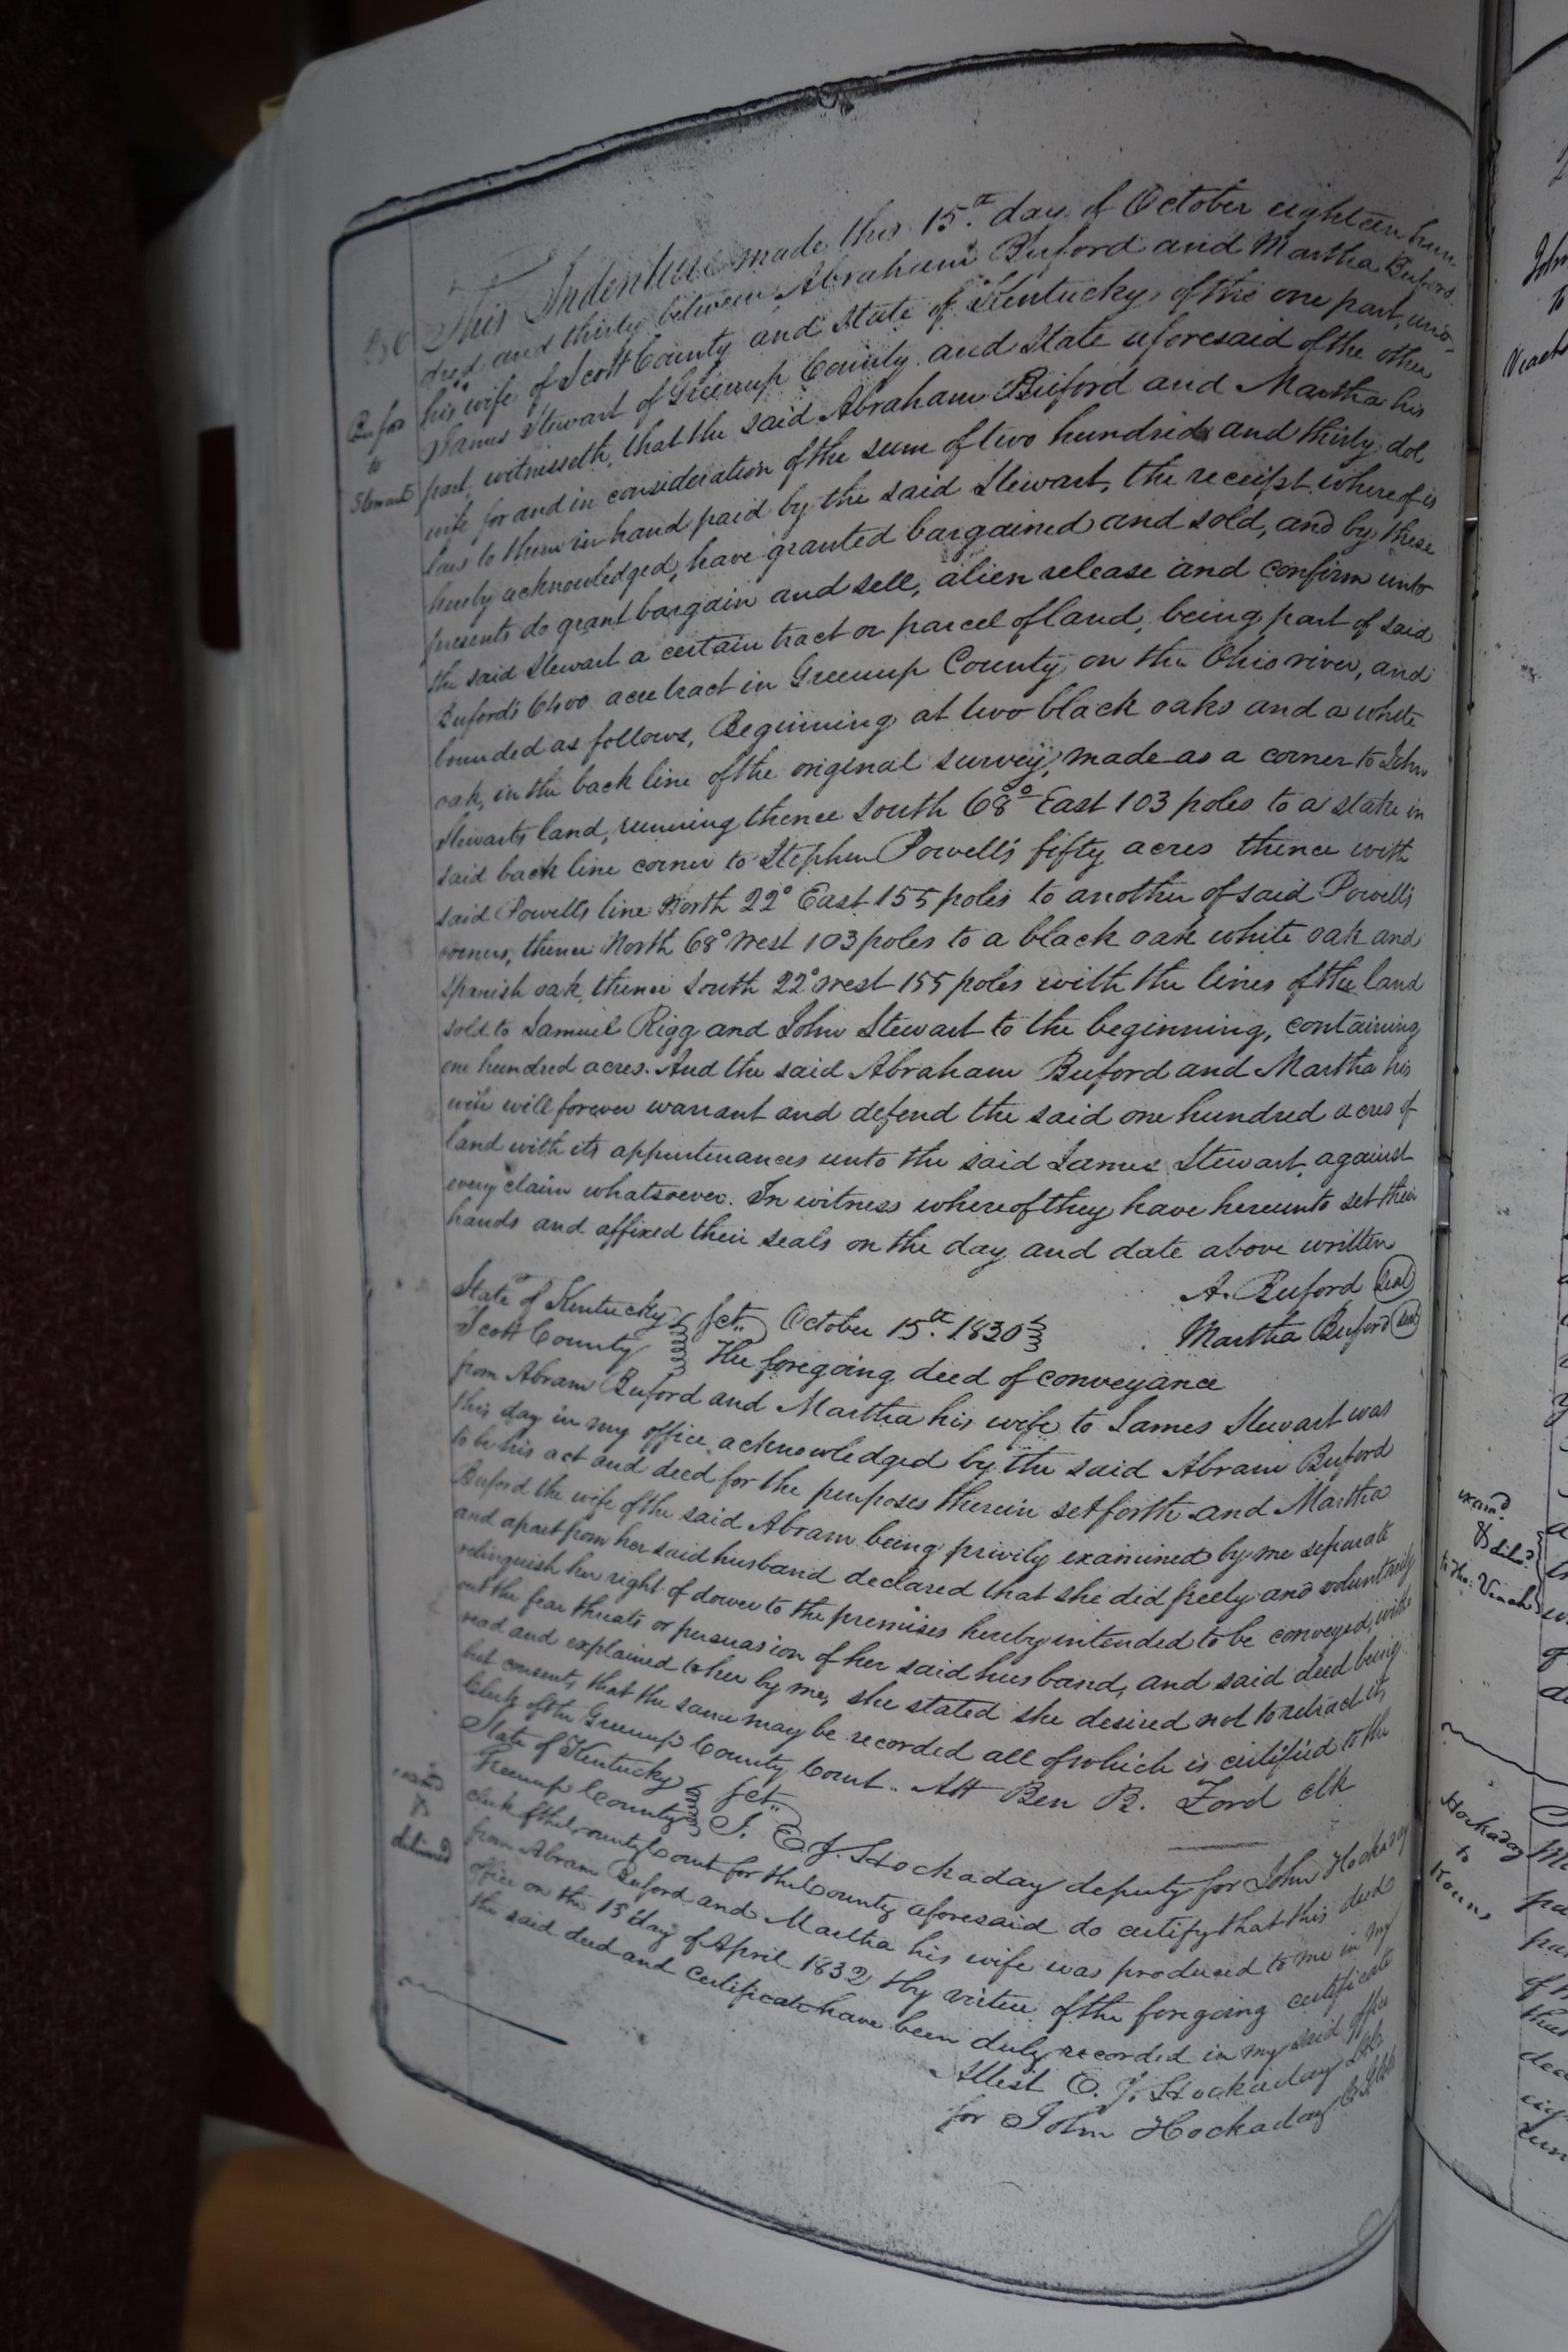 This Indenture made this 15.th day of October eighteen hun
dred and thirty between Abraham Buford and Martha Buford
his wife of Scott County and State of Kentucky, of the one part, and
James Stewart of Greenup County and State aforesaid of the other
Buford
to
Stewart
part, witnesseth, that the said Abraham Buford and Martha his
wife for and in consideration of the sum of two hundred and thirty dol
lars to them in hand paid by the said Stewart, the receipt whereof is
hereby acknowledged, have granted bargained and sold, and by these
presents do grant bargain and sell, alien release and confirm unto
the said Stewart a certain tract or parcel of land, being part of said
Buford's acre tract in Greenup County on the Ohio river, and
bounded as follows, Beginning at two black oaks and a white
oak, in the back line of the original survey, made as a corner to John
Stewarts land, running thence South 68° East 103 poles to a stake in
said back line corner to Stephen Powell's fifty acres thence with
said Powells line North 22° East 155 poles to another of said Powells
corners, thence North 68° West 103 poles to a black oak white oak and
Spanish oak, thence South 22° West 155 poles with the lines of the land
sold to Samuel Rigg and John Stewart to the beginning, containing
one hundred acres. And the said Abraham Buford and Martha his
wife will forever warrant and defend the said one hundred acres of
land with its appurtenances unto the said James Stewart, against
every claim whatsoever. In witness whereof they have hereunto set their
hands and affixed their seals on the day and date above written
A. Buford Seal
Martha Buford Seal
State of Kentucky Sct. October 15.th 1830
Scott County The foregoing deed of conveyance
from Abram Buford and Martha his wife to James Stewart was
this day in my office acknowledged by the said Abram Buford
to be his act and deed for the purposes therein set forth and Martha
Buford the wife of the said Abram being privily examined by me separate
and apart from her said husband declared that she did freely and voluntarily
relinquish her right of dower to the premises hereby intended to be conveyed, with
out the fear threats or persuasion of her said husband, and said deed being
read and explained to her by me, she stated she desired not to retract it,
but consents that the same may be recorded all of which is certified to the
Clerk of the Greenup County Court. Att Ben B. Ford clk
State of Kentucky Sct.
Greenup County I. E. J. Hockaday deputy for John Hockaday
clerk of the County Court for the County aforesaid do certify that this deed
from Abram Buford and Martha his wife was produced to me in my
office on the 13 day of April 1832 By virtue of the foregoing certificate
the said deed and certificate have been duly recorded in my said office
Attest E. J. Hockaday
for John Hockaday
examd
&
delivered
examd
& deld
Hockaday
to
Kouns